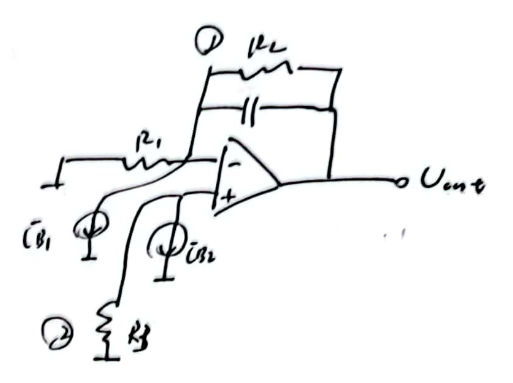 ①
R₂
R₁
-
+
Uout
iB1
iB2
②
R3